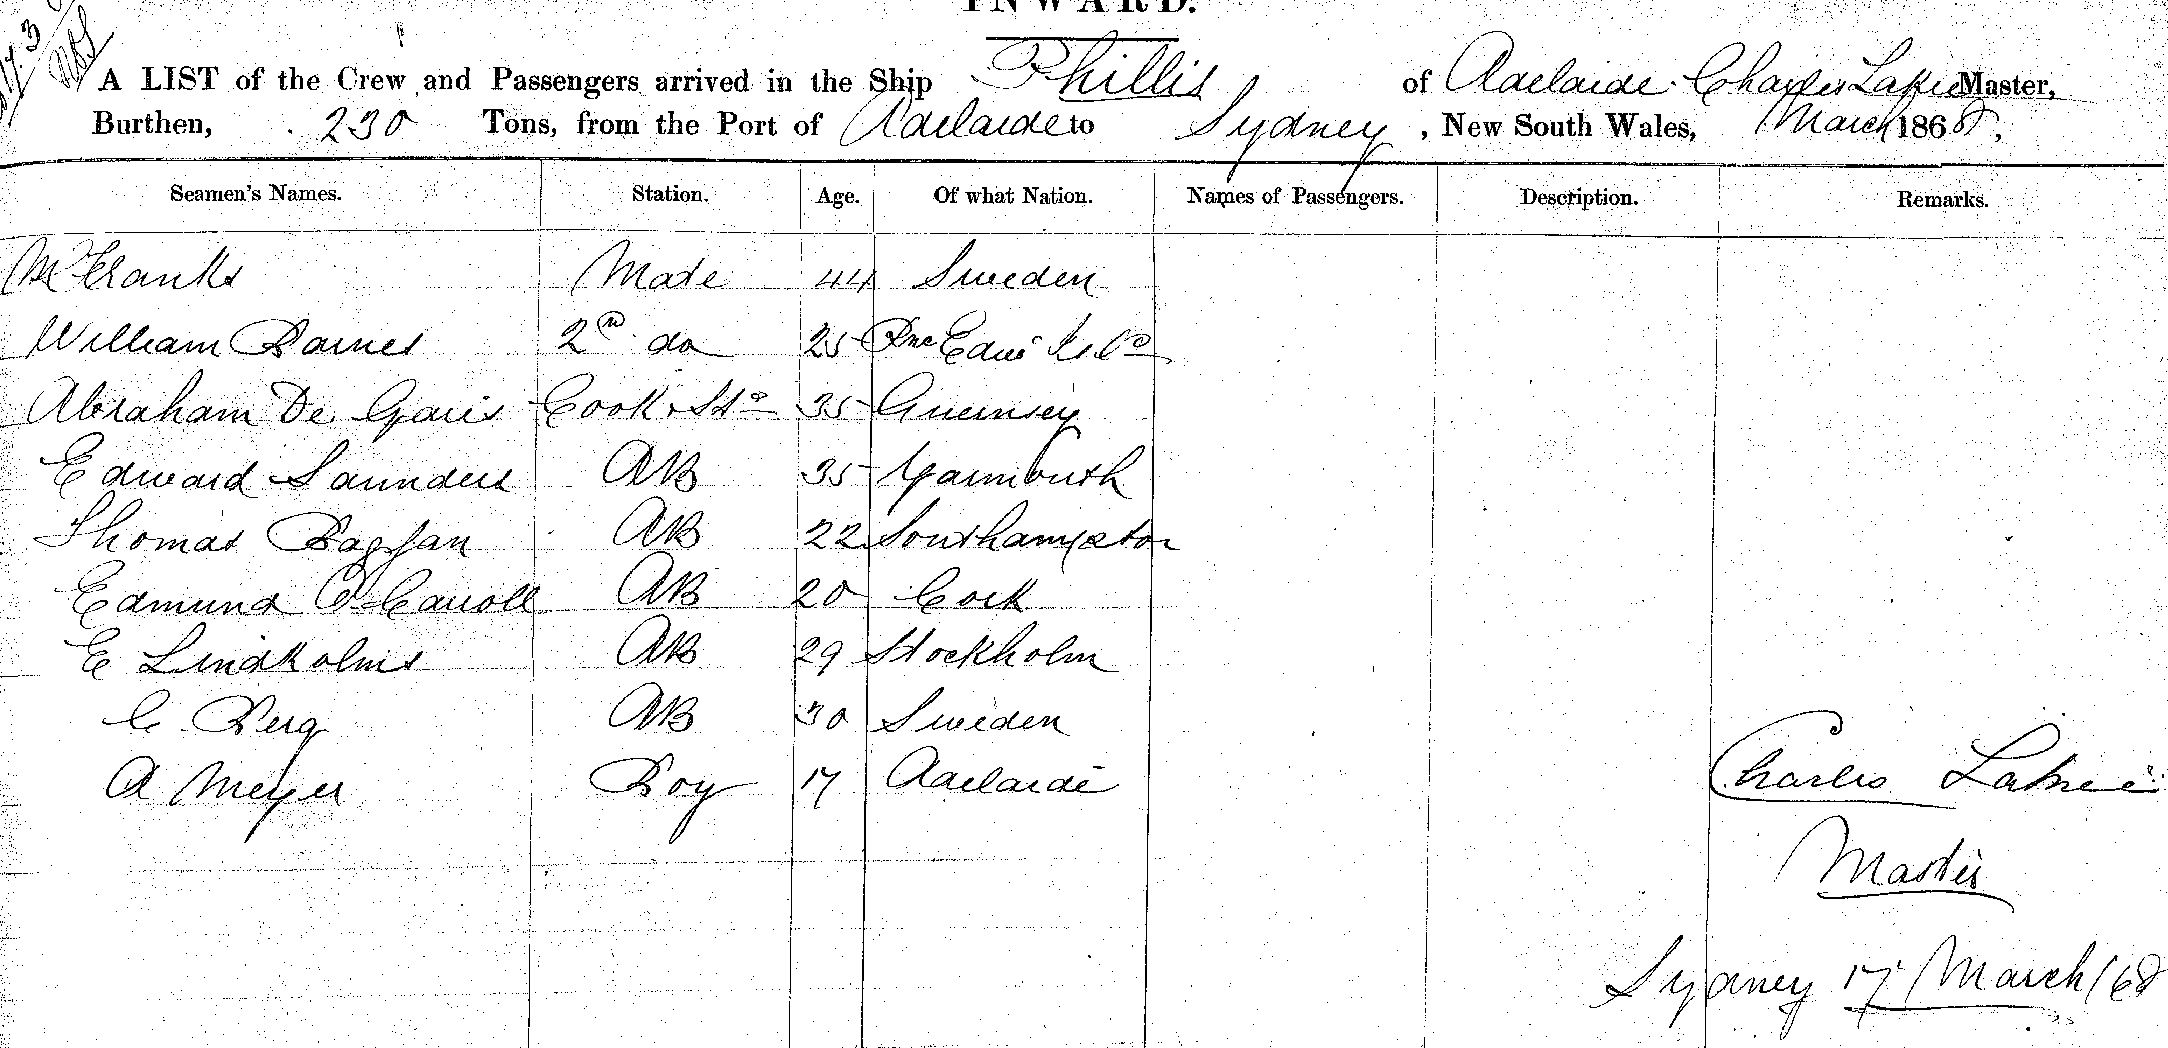 INWARD.
A LIST of the Crew and Passengers arrived in the Ship Phillis of Adelaide Charles Master,
Burthen, 230 Tons, from the Port of Adelaide to Sydney, New South Wales, March 1868.
Seamen's Names. Station. Age. Of what Nation. Names of Passengers. Description. Remarks.
Mate 44 Sweden
William Barnes 2n do 25 Pne Edwd Isld
Abraham De Garis Cook & Std 35 Guernsey
Edward Saunders AB 35 Yarmouth
Thomas AB 22 Southampton
Edmund O'Carroll AB 20 Cork
E Lindholms AB 29 Stockholm
C Berg AB 30 Sweden
A Meyer Boy 17 Adelaide
Charles
Master
Sydney 17 March /68